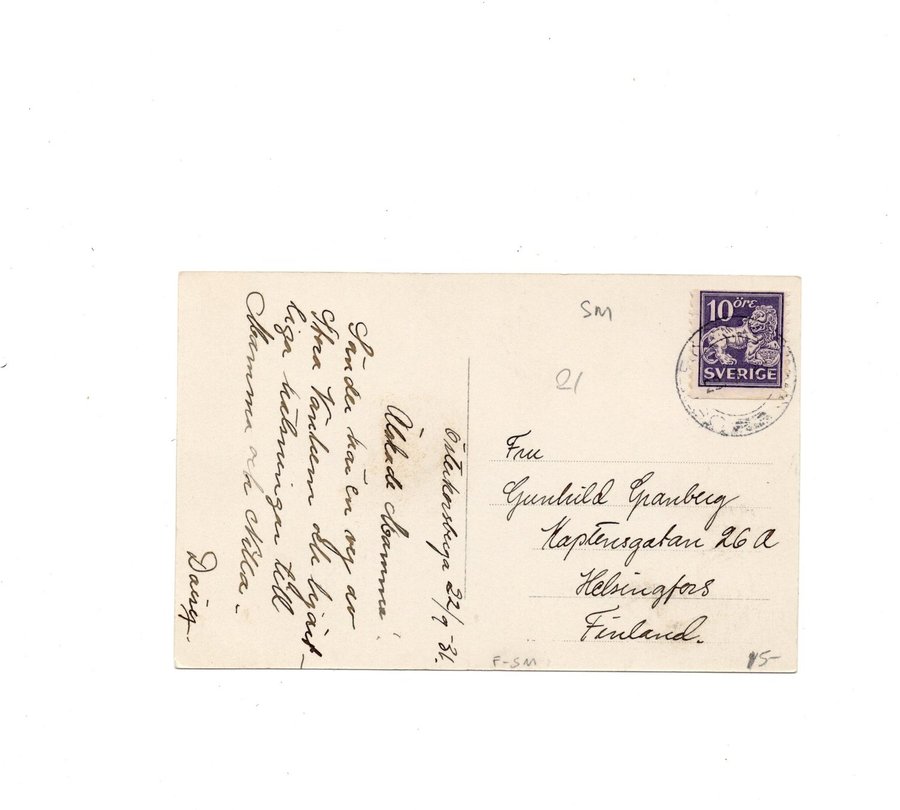 Österkorsberga 22/9-31.
Älskade Mamma!
Sänder här en vy av
Stora Vänhem och hjärt-
liga hälsningar till
Mamma och Nilla.
Daisy.
SM
21
10 öre
SVERIGE
Fru
Gunhild Granberg
Kaptensgatan 26 A
Helsingfors
Finland.
F-SM
15-